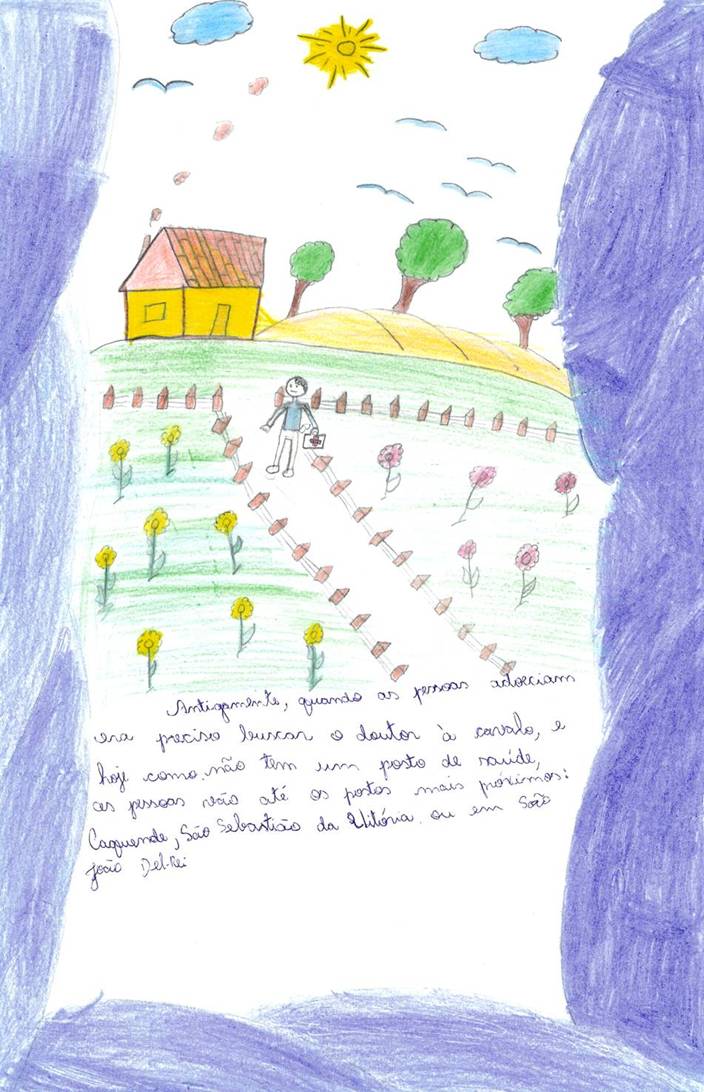 Antigamente, quando as pessoas adoeciam
era preciso buscar o doutor à cavalo, e
hoje como não tem um posto de saúde,
as pessoas vão até os postos mais próximos:
Caquende, São Sebastião da Vitória. ou em São
João Del-Rei